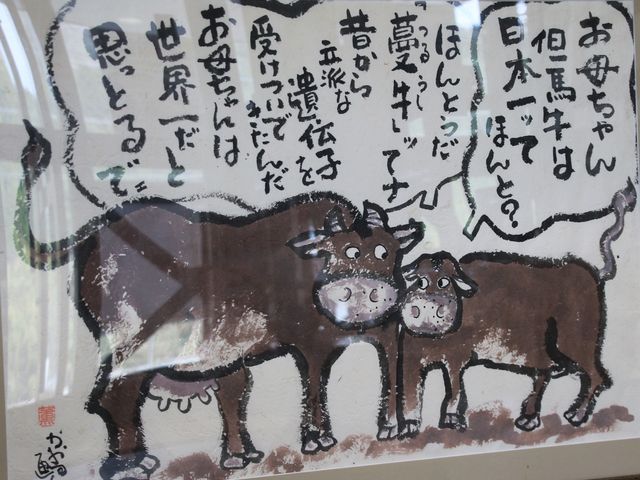 お母ちゃん
但馬牛は
日本一って
ほんと?
ほんとうだ
つるうし
蔓牛ッてナ
昔から
立派な
遺伝子を
受けついで
きたんだ
お母ちゃんは
世界一だと
思っとるでニ
かおる
画